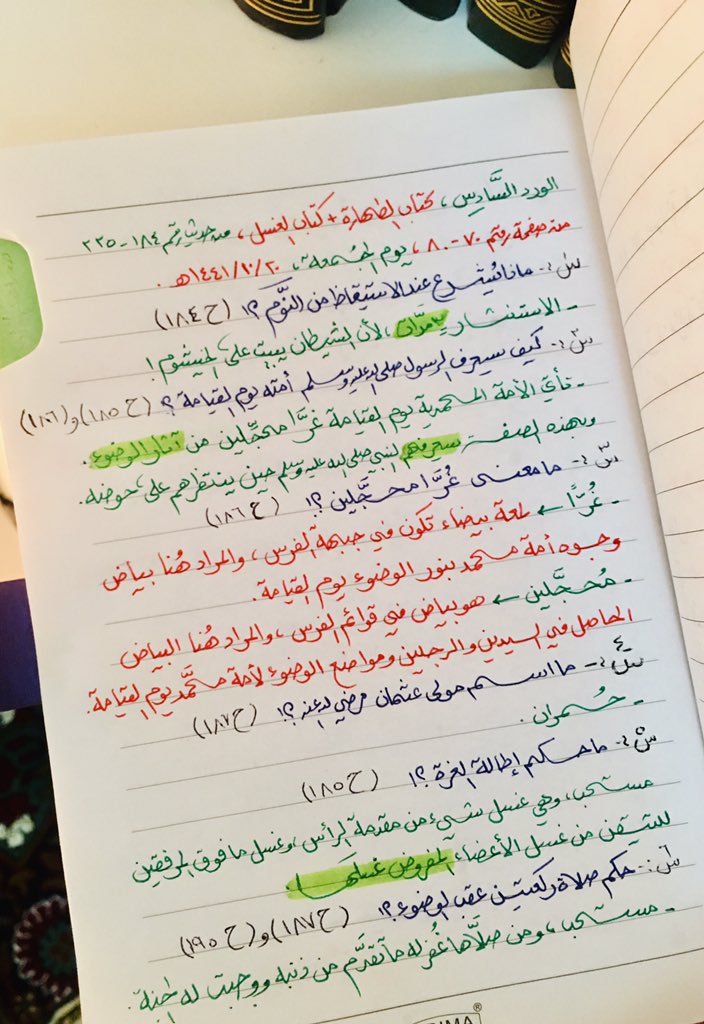 الورد السَّادِس، كتاب الطهارة + كتاب الغسل، من حديث رقم ١٨٤-٢٢٥
من صفحة رقم ٧٠-٨٠، يوم الجُمعة، ١٤٤١/١٠/٢٠هـ.
س١:- ماذا يُشرع عند الاستيقاظ من النَّوم؟! (ح١٨٤)
- الاستنشار ٣ مرَّات، لأن الشيطان يبيت على الخيشوم!
س٢:- كيف سيعرف الرسول صلى الله عليه وسلم أمته يوم القيامة؟ (ح١٨٥) و(١٨٦)
- تأتي الأمة المحمدية يوم القيامة غرًّا محجَّلين من آثار الوضوء.
وبهذه الصفة سيعرفهم النبي صلى الله عليه وسلم حين ينتظرهم على حوضه.
س٣:- ما معنى غُرًّا محجَّلين؟! (ح١٨٦)
- غُرًّا ← لمعة بيضاء تكون في جبهة الفرس، والمراد هُنا بياض
وجوه أمة محمد بنور الوضوء يوم القيامة.
- مُحجَّلين ← هو بياض في قوائم الفرس، والمراد هُنا البياض
الحاصل في اليدين والرجلين ومواضع الوضوء لأمة محمَّد يوم القيامة.
س٤:- ما اسم مولى عثمان رضي الله عنه؟! (ح١٨٧)
- حُمران.
س٥:- ما حكم إطالة الغرة؟! (ح١٨٥)
مستحب، وهي غسل شيء من مقدمة الرأس، وغسل ما فوق المرفقين
للتيقن من غسل الأعضاء المفروض غسلها.
س٦:- حكم صلاة ركعتين عقب الوضوء؟! (ح١٨٧) و(ح١٩٥)
- مستحب، ومن صلَّاها غُفر له ما تقدَّم من ذنبه ووجبت له الجنة.